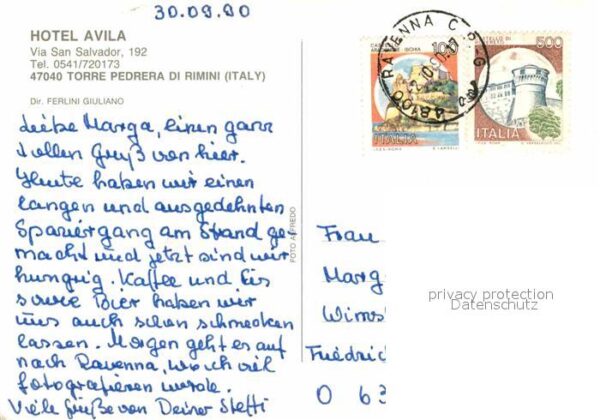 30.09.90
HOTEL AVILA
Via San Salvador, 192
Tel. 0541/720173
47040 TORRE PEDRERA DI RIMINI (ITALY)
Dir. FERLINI GIULIANO
Liebe Marga, einen ganz
tollen Gruß von hier.
Heute haben wir einen
langen und ausgedehnten
Spaziergang am Strand ge-
macht und jetzt sind wir
hungrig. Kaffee und Eis
sowie Bier haben wir
uns auch schon schmecken
lassen. Morgen geht es auf
nach Ravenna, wo ich viel
fotografieren werde.
Viele Grüße von Deiner Steffi
FOTO ALFREDO
RAVENNA C.P.G
48100
100
ISCHIA
ITALIA
500
ITALIA
Frau
Marg
Wims
Friedric
O 63
privacy protection
Datenschutz